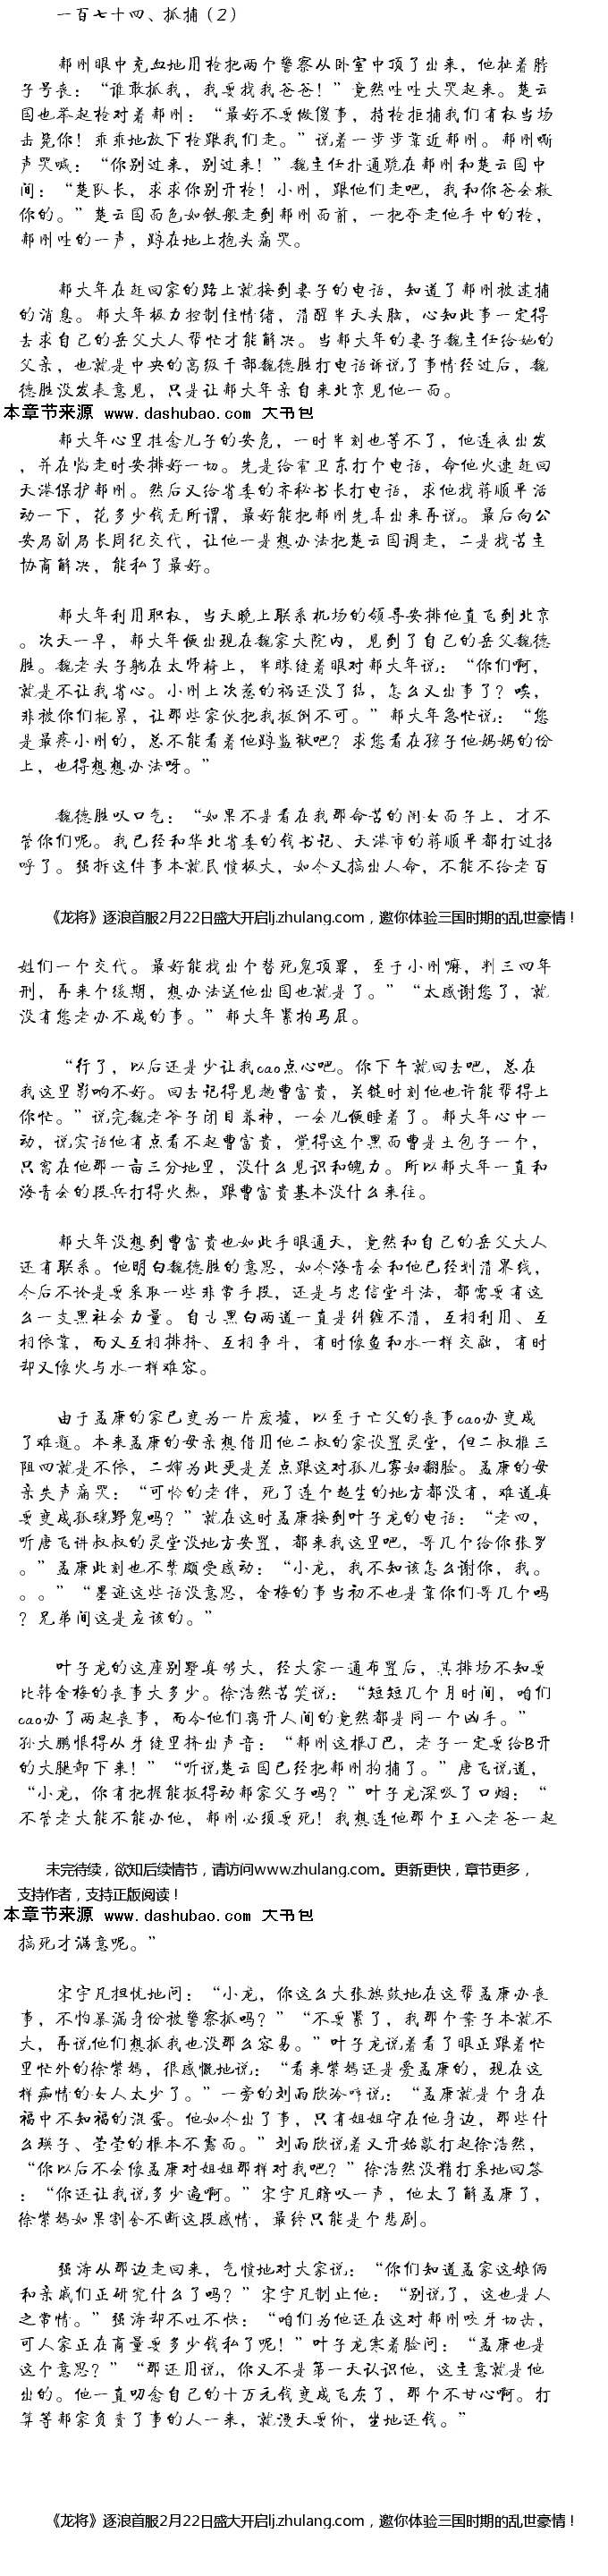 一百七十四、抓捕（2）
郝刚眼中充血地用枪把两个警察从卧室中顶了出来，他扯着脖
子号丧：“谁敢抓我，我要找我爸爸！”竟然哇哇大哭起来。楚云
国也举起枪对着郝刚：“最好不要做傻事，持枪拒捕我们有权当场
击毙你！乖乖地放下枪跟我们走。”说着一步步靠近郝刚。郝刚嘶
声哭喊：“你别过来，别过来！”魏主任扑通跪在郝刚和楚云国中
间：“楚队长，求求你别开枪！小刚，跟他们走吧，我和你爸会救
你的。”楚云国面色如铁般走到郝刚面前，一把夺走他手中的枪，
郝刚哇的一声，蹲在地上抱头痛哭。
郝大年在赶回家的路上就接到妻子的电话，知道了郝刚被逮捕
的消息。郝大年极力控制住情绪，清醒半天头脑，心知此事一定得
去求自己的岳父大人帮忙才能解决。当郝大年的妻子魏主任给她的
父亲，也就是中央的高级干部魏德胜打电话诉说了事情经过后，魏
德胜没发表意见，只是让郝大年亲自来北京见他一面。
本章节来源 www.dashubao.com 大书包
郝大年心里挂念儿子的安危，一时半刻也等不了，他连夜出发
，并在临走时安排好一切。先是给霍卫东打个电话，命他火速赶回
天港保护郝刚。然后又给省委的齐秘书长打电话，求他找蒋顺平活
动一下，花多少钱无所谓，最好能把郝刚先弄出来再说。最后向公
安局副局长周纪交代，让他一是想办法把楚云国调走，二是找苦主
协商解决，能私了最好。
郝大年利用职权，当天晚上联系机场的领导安排他直飞到北京
。次天一早，郝大年便出现在魏家大院内，见到了自己的岳父魏德
胜。魏老头子躺在太师椅上，半眯缝着眼对郝大年说：“你们啊，
就是不让我省心。小刚上次惹的祸还没了结，怎么又出事了？唉，
非被你们拖累，让那些家伙把我扳倒不可。”郝大年急忙说：“您
是最疼小刚的，总不能看着他蹲监狱吧？求您看在孩子他妈妈的份
上，也得想想办法呀。”
魏德胜叹口气：“如果不是看在我那命苦的闺女面子上，才不
管你们呢。我已经和华北省委的钱书记、天港市的蒋顺平都打过招
呼了。强拆这件事本就民愤极大，如今又搞出人命，不能不给老百
《龙将》逐浪首服2月22日盛大开启lj.zhulang.com，邀你体验三国时期的乱世豪情！
姓们一个交代。最好能找出个替死鬼顶罪，至于小刚嘛，判三四年
刑，再来个缓期，想办法送他出国也就是了。”“太感谢您了，就
没有您老办不成的事。”郝大年紧拍马屁。
“行了，以后还是少让我cao点心吧。你下午就回去吧，总在
我这里影响不好。回去记得见趟曹富贵，关键时刻他也许能帮得上
你忙。”说完魏老爷子闭目养神，一会儿便睡着了。郝大年心中一
动，说实话他有点看不起曹富贵，觉得这个黑面曹是土包子一个，
只窝在他那一亩三分地里，没什么见识和魄力。所以郝大年一直和
海青会的段兵打得火热，跟曹富贵基本没什么来往。
郝大年没想到曹富贵也如此手眼通天，竟然和自己的岳父大人
还有联系。他明白魏德胜的意思，如今海青会和他已经划清界线，
今后不论是要采取一些非常手段，还是与忠信堂斗法，都需要有这
么一支黑社会力量。自古黑白两道一直是纠缠不清，互相利用、互
相依靠，而又互相排挤、互相争斗，有时像鱼和水一样交融，有时
却又像火与水一样难容。
由于孟康的家已变为一片废墟，以至于亡父的丧事cao办变成
了难题。本来孟康的母亲想借用他二叔的家设置灵堂，但二叔推三
阻四就是不依，二婶为此更是差点跟这对孤儿寡妇翻脸。孟康的母
亲失声痛哭：“可怜的老伴，死了连个超生的地方都没有，难道真
要变成孤魂野鬼吗？”就在这时孟康接到叶子龙的电话：“老四，
听唐飞讲叔叔的灵堂没地方安置，都来我这里吧，哥几个给你张罗
。”孟康此刻也不禁颇受感动：“小龙，我不知该怎么谢你，我。
。。”“墨迹这些话没意思，金梅的事当初不也是靠你们哥几个吗
？兄弟间这是应该的。”
叶子龙的这座别墅真够大，经大家一通布置后，其排场不知要
比韩金梅的丧事大多少。徐浩然苦笑说：“短短几个月时间，咱们
cao办了两起丧事，而令他们离开人间的竟然都是同一个凶手。”
孙大鹏恨得从牙缝里挤出声音：“郝刚这根J巴，老子一定要给B开
的大腿卸下来！”“听说楚云国已经把郝刚拘捕了。”唐飞说道，
“小龙，你有把握能扳得动郝家父子吗？”叶子龙深吸了口烟：“
不管老大能不能办他，郝刚必须要死！我想连他那个王八老爸一起
未完待续，欲知后续情节，请访问www.zhulang.com。更新更快，章节更多，
支持作者，支持正版阅读！
本章节来源 www.dashubao.com 大书包
搞死才满意呢。”
宋宇凡担忧地问：“小龙，你这么大张旗鼓地在这帮孟康办丧
事，不怕暴漏身份被警察抓吗？”“不要紧了，我那个案子本就不
大，再说他们想抓我也没那么容易。”叶子龙说着看了眼正跟着忙
里忙外的徐紫嫣，很感慨地说：“看来紫嫣还是爱孟康的，现在这
样痴情的女人太少了。”一旁的刘雨欣冷哼说：“孟康就是个身在
福中不知福的混蛋。他如今出了事，只有姐姐守在他身边，那些什
么瑛子、莹莹的根本不露面。”刘雨欣说着又开始敲打起徐浩然，
“你以后不会像孟康对姐姐那样对我吧？”徐浩然没精打采地回答
：“你还让我说多少遍啊。”宋宇凡暗叹一声，他太了解孟康了，
徐紫嫣如果割舍不断这段感情，最终只能是个悲剧。
强涛从那边走回来，气愤地对大家说：“你们知道孟家这娘俩
和亲戚们正研究什么了吗？”宋宇凡制止他：“别说了，这也是人
之常情。”强涛却不吐不快：“咱们为他还在这对郝刚咬牙切齿，
可人家正在商量要多少钱私了呢！”叶子龙寒着脸问：“孟康也是
这个意思？”“那还用说，你又不是第一天认识他，这主意就是他
出的。他一直叨念自己的十万元钱变成飞灰了，那个不甘心啊。打
算等郝家负责了事的人一来，就漫天要价，坐地还钱。”
《龙将》逐浪首服2月22日盛大开启lj.zhulang.com，邀你体验三国时期的乱世豪情！